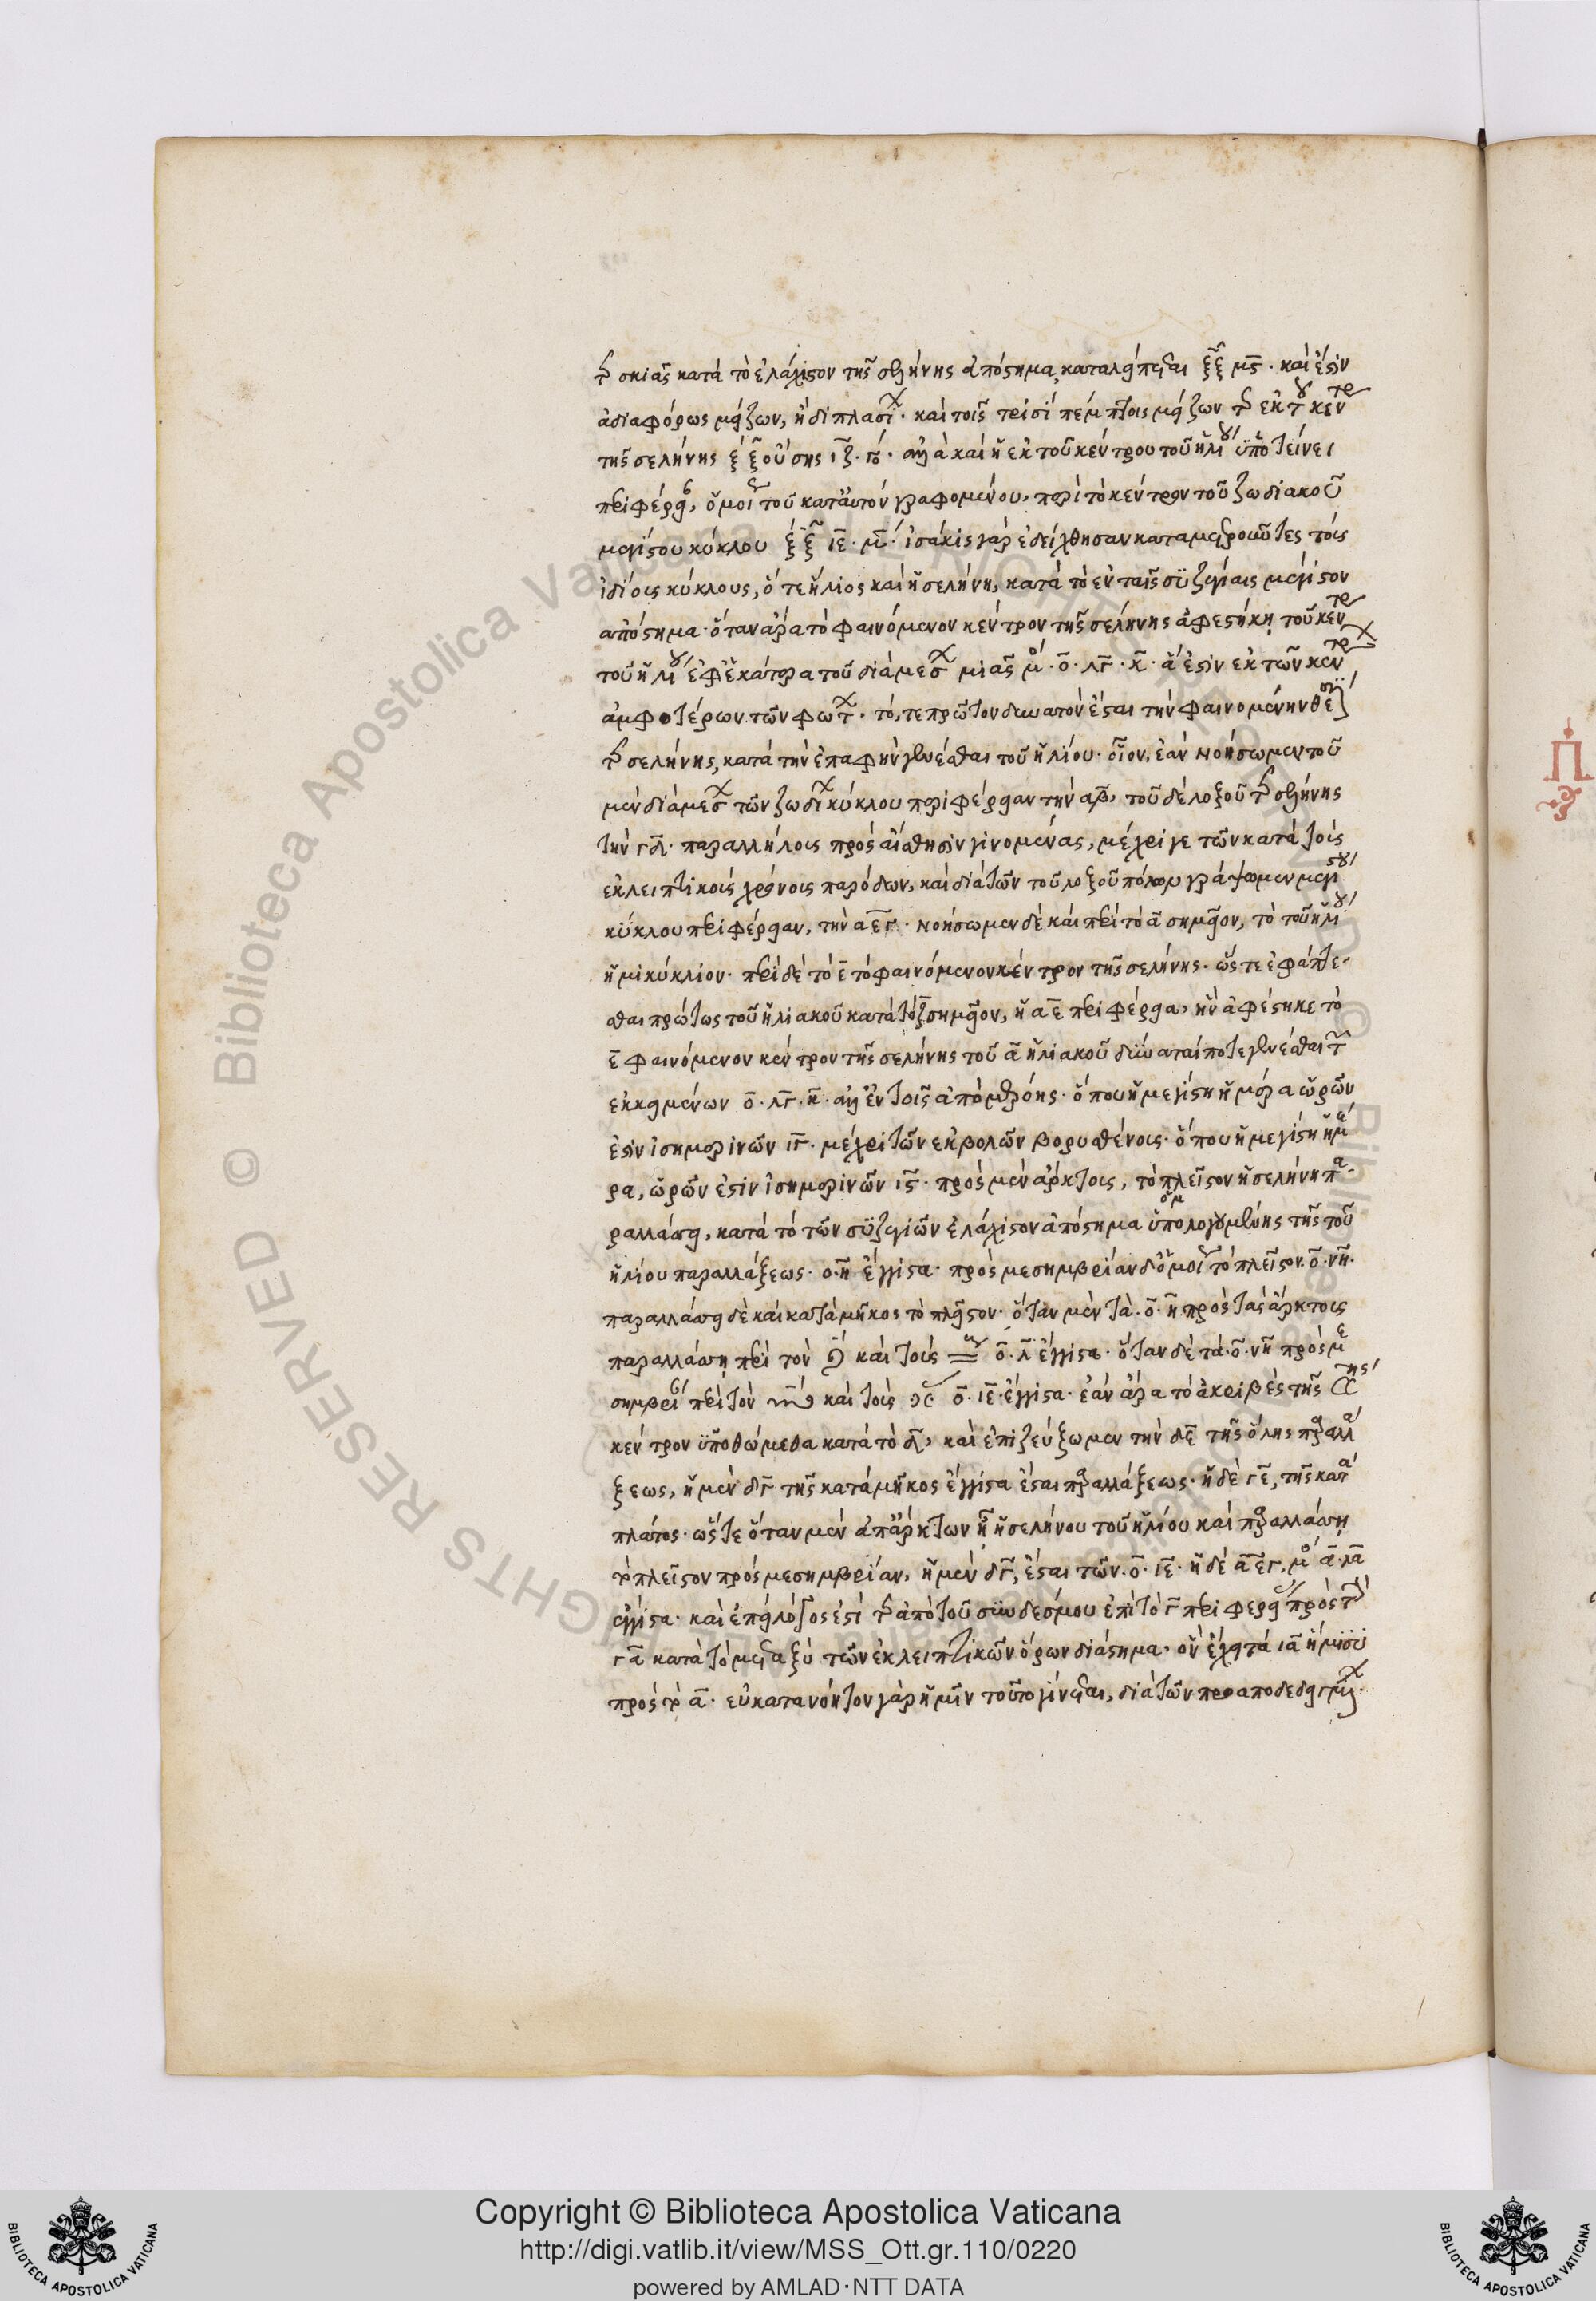 τῆς σκιᾶς κατὰ τὸ ἐλάχιστον τῆς σελήνης ἀπόστημα, καταλείπεται ξξ μς. καὶ ἔστιν
ἀδιαφόρως μείζων, ἢ διπλασί. καὶ τοῖς τρισὶ πέμπτοις μείζων τῆς ἐκ τοῦ κεντρ
τῆς σελήνης ἑξ οὔσης ιζ. ἀλλὰ καὶ ἡ ἐκ τοῦ κέντρου τοῦ ἡλίου ὑποτείνει
περιφέρειαν, ὁμοίως τοῦ κατ' αὐτὸν γραφομένου, περὶ τὸ κέντρον τοῦ ζωδιακοῦ
μεγίστου κύκλου ξξ ιε. μ. ἰσάκις γὰρ ἐδείχθησαν καταμετροῦντες τοὺς
ἰδίους κύκλους, ὅ τε ἥλιος καὶ ἡ σελήνη, κατὰ τὸ ἐν ταῖς συζυγίαις μέγιστον
ἀπόστημα. ὅταν ἄρα τὸ φαινόμενον κέντρον τῆς σελήνης ἀφεστήκῃ τοῦ κεντρ
τοῦ ἡλίου ἐφ' ἑκάτερα τοῦ διὰ μέσ μιᾶς μο. ο. λγ. κ. ἅ ἐστιν ἐκ τῶν κεντρ
ἀμφοτέρων τῶν φωτ. τό, τε πρῶτον δυνατὸν ἔσται τὴν φαινομένην θέσιν
τῆς σελήνης, κατὰ τὴν ἐπαφὴν γίνεσθαι τοῦ ἡλίου. οἷον, ἐὰν νοήσωμεν τοῦ
μὲν διὰ μέσ τῶν ζωδι κύκλου περιφέρειαν τὴν αβ, τοῦ δὲ λοξοῦ τῆς σελήνης
τὴν γδ. παραλλήλους πρὸς αἴσθησιν γινομένας, μέχρι γε τῶν κατὰ τοὺς
ἐκλειπτικοὺς χρόνους παρόδων, καὶ διὰ τῶν τοῦ λοξοῦ πόλου γράψωμεν μεγίστου
κύκλου περιφέρειαν, τὴν αεγ. νοήσωμεν δὲ καὶ περὶ τὸ α σημεῖον, τὸ τοῦ ἡλίου
ἡμικύκλιον. περὶ δὲ τὸ ε τὸ φαινόμενον κέντρον τῆς σελήνης. ὥστε ἐφάπτε-
σθαι πρώτως τοῦ ἡλιακοῦ κατὰ τὸ ζ σημεῖον, ἡ αε περιφέρεια, ἣν ἀφέστηκε τὸ
ε φαινόμενον κέντρον τῆς σελήνης τοῦ α ἡλιακοῦ δύναταί ποτε γίνεσθαι τ
ἐκκειμένων ο. λγ. κ. ἀλλ' ἐν τοῖς ἀπὸ μερόης. ὅπου ἡ μεγίστη ἡμέρα ὡρῶν
ἐστιν ἰσημερινῶν ιγ. μέχρι τῶν ἐκβολῶν βορυσθένους. ὅπου ἡ μεγίστη ἡμέ
ρα, ὡρῶν ἐστιν ἰσημερινῶν ις. πρὸς μὲν ἄρκτους, τὸ πλεῖστον ἡ σελήνη πα-
ραλλάσσει, κατὰ τὸ τῶν συζυγιῶν ἐλάχιστον ἀπόστημα ὑπολογουμένης τῆς τοῦ
ἡλίου παραλλάξεως. ο. η ἔγγιστα. πρὸς μεσημβρίαν δ' ὁμοίως τὸ πλεῖστον. ο. νη.
παραλλάσσει δὲ καὶ κατὰ μῆκος τὸ πλεῖστον. ὅταν μὲν τὰ. ο. η πρὸς τὰς ἄρκτους
παραλλάσσῃ περὶ τὸν ♌ καὶ τοὺς ♊ ο. λ ἔγγιστα. ὅταν δὲ τὰ. ο. νη πρὸς με
σημβρίαν περὶ τὸν ♏ καὶ τοὺς ♓ ο. ιε. ἔγγιστα. ἐὰν ἄρα τὸ ἀκριβὲς τῆς ☾ης
κέντρον ὑποθώμεθα κατὰ τὸ δ, καὶ ἐπιζεύξωμεν τὴν δε τῆς ὅλης παραλλά
ξεως, ἡ μὲν δγ τῆς κατὰ μῆκος ἔγγιστα ἔσται παραλλάξεως. ἡ δὲ γε, τῆς κατὰ
πλάτος. ὥστε ὅταν μὲν ἀπ' ἄρκτων ᾖ ἡ σελήνου τοῦ ἡλίου καὶ παραλλάσσῃ
τὸ πλεῖστον πρὸς μεσημβρίαν, ἡ μὲν δγ, ἔσται τῶν. ο. ιε. ἡ δὲ α ε γ, μο α. λα
ἔγγιστα. καὶ ἐπεὶ λόγος ἐστὶ τῆς ἀπὸ τοῦ συνδέσμου ἐπὶ τὸ γ περιφερείας πρὸς τὴν
γα κατὰ τὸ μεταξὺ τῶν ἐκλειπτικῶν ὅρων διάστημα. ὃν ἔχει τὰ ια ἥμισυ
πρὸς τὸ α. εὐκατανόητον γὰρ ἡμῖν τοῦτο γίνεται, διὰ τῶν προαποδεδειγμέν.
Copyright © Biblioteca Apostolica Vaticana
http://digi.vatlib.it/view/MSS_Ott.gr.110/0220
powered by AMLAD·NTT DATA